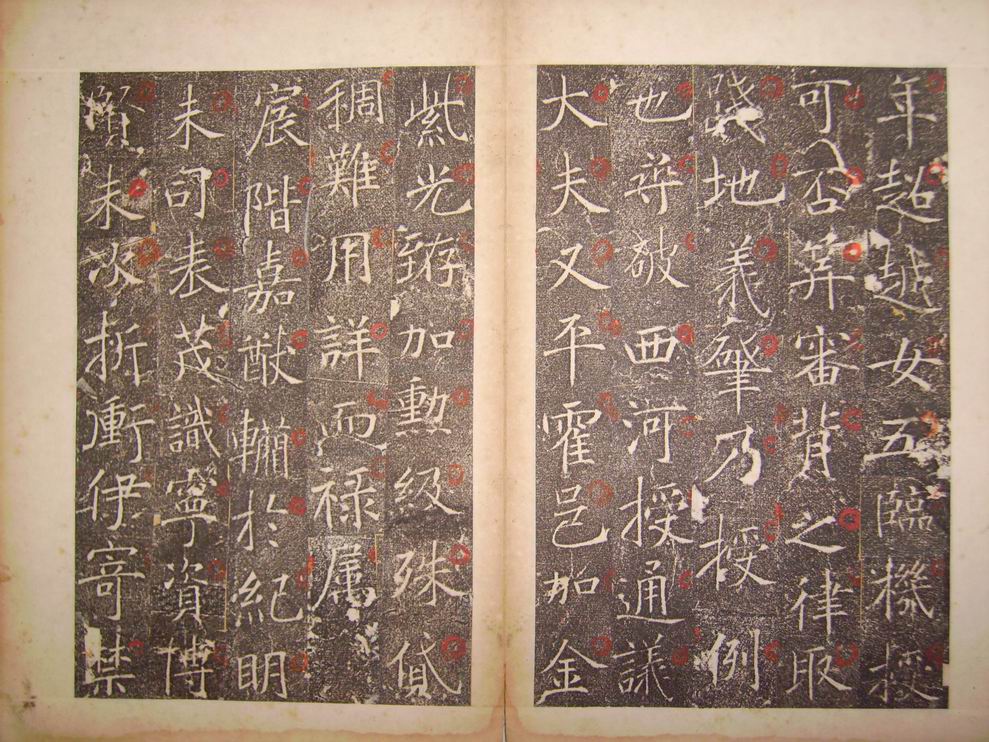 年超越女五臨機授
可否筭審背之律取
踐地義肇乃授例
也尊敬西河授通議
大夫又平霍邑加金
紫光錺加勳級殊貸
稠難用詳而禄属
宸階嘉猷輶於紀明
未司表茂識寧資博
贊未次折衝伊寄禁